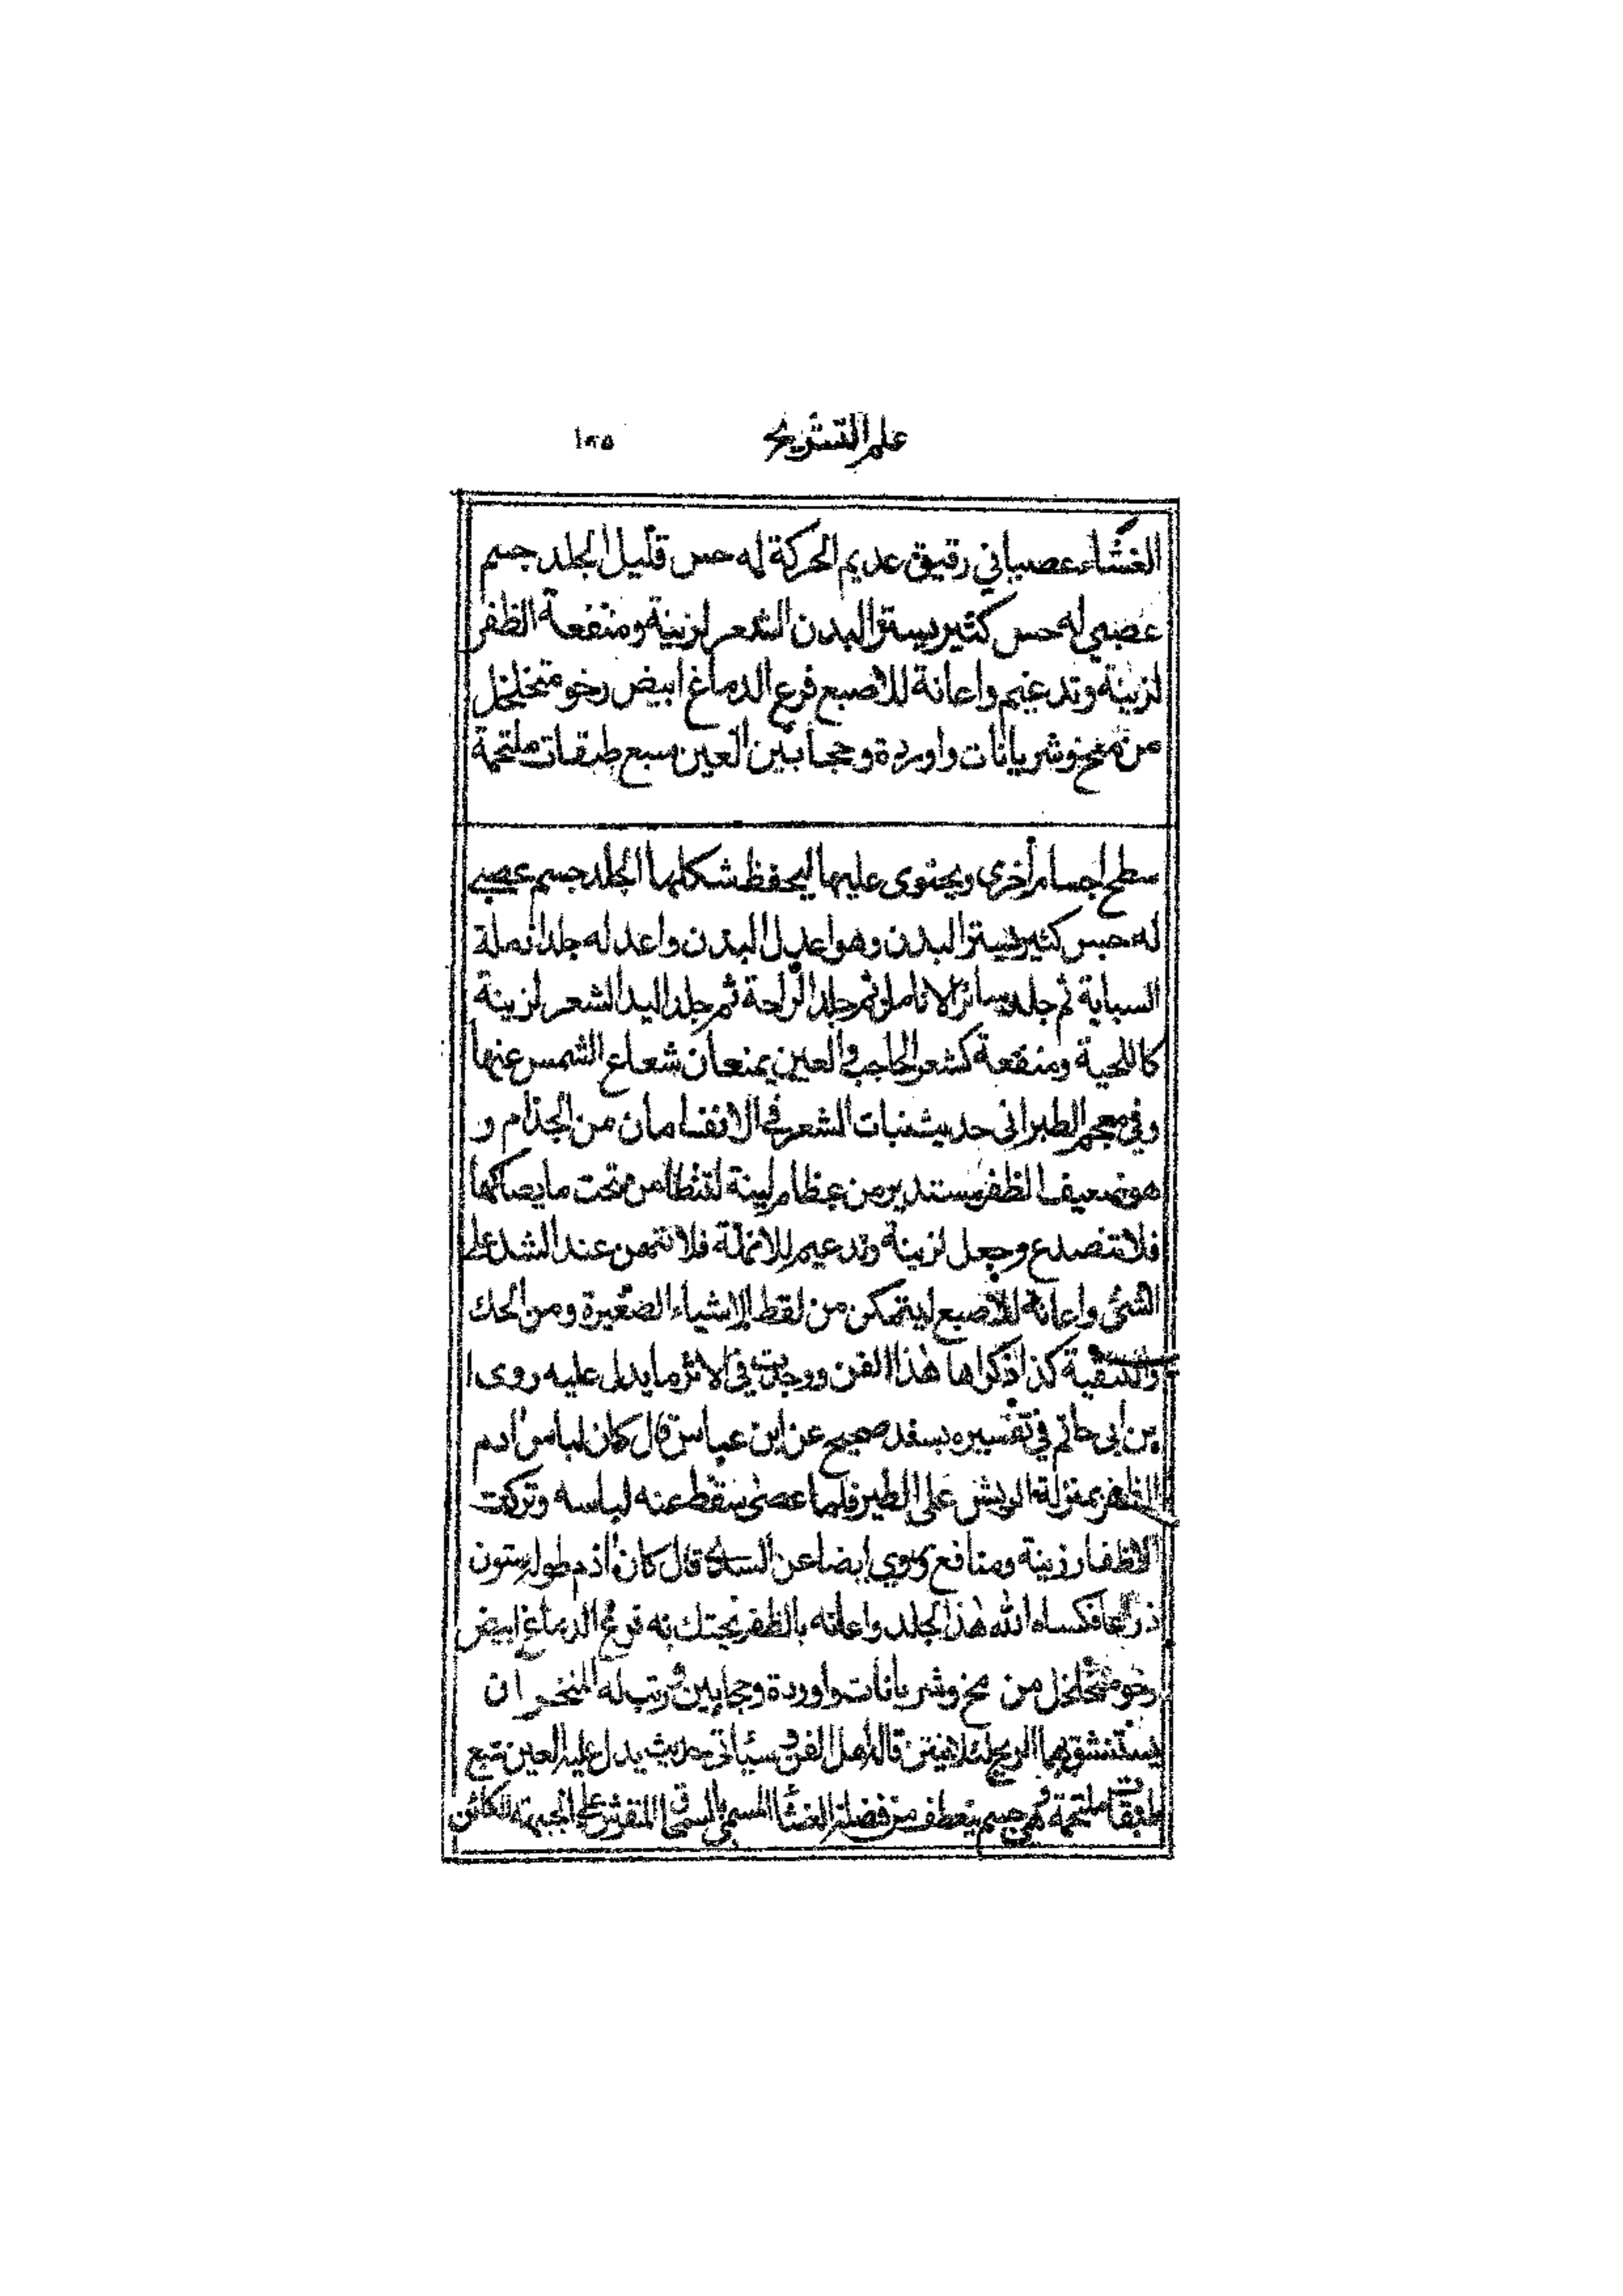 علم التشريح ١٢٥
الغشاء عصباني رقيق عديم الحركة له حس قليل الجلد جسم
عصبي له حس كثير يستر البدن الشعر لزينة ومنفعة الظفر
لزينة وتدعيم واعانة للاصبع فرع الدماغ ابيض رخو متخلخل
من مخ وشريانات واوردة وحجابين العين سبع طبقات ملتحمة
سطح اجسام أخرى ويحتوى عليها ليحفظ شكلها الجلد جسم عصبي
له حس كثير يستر البدن وهو اعدل البدن واعدله جلد انملة
السبابة ثم جلد سائر الانامل ثم جلد الراحة ثم جلد اليد الشعر لزينة
كاللحية ومنفعة كشعر الحاجب والعين يمنعان شعاع الشمس عنها
وفي معجم الطبراني حديث نبات الشعر في الانف امان من الجذام و
هو ضعيف الظفر مستدير من عظام لينة لتنطا من تحت ما يصاكها
فلا تنصدع وجعل لزينة وتدعيم للانملة فلا تنهن عند الشد على
الشئ واعانة للاصبع ليتمكن من لقط الاشياء الصغيرة ومن الحك
والتنقية كذا ذكر اهل هذا الفن ووجدت في الاثر ما يدل عليه روى ا
بن ابى حاتم في تفسيره بسند صحيح عن ابن عباس قال كان لباس ادم
الظفر بمنزلة الريش على الطير فلما عصى سقط عنه لباسه وتركت
الاظفار زينة ومنافع وروي ايضا عن السدي قال كان آدم طوله ستون
ذراعا فكساه الله هذا الجلد واعانه بالظفر يحتك به فرع الدماغ ابيض
رخو متخلخل من مخ وشريانات واوردة وحجابين ورتب له المنخران
يستنشق بهما الريح لئلا ينتن قاله اهل الفن وسيأتى حديث يدل عليه العين سبع
طبقات ملتحمة وهى جسم ينعطف من فضلة الغشا المسمى بالسمحاق على الجبهة الكائن